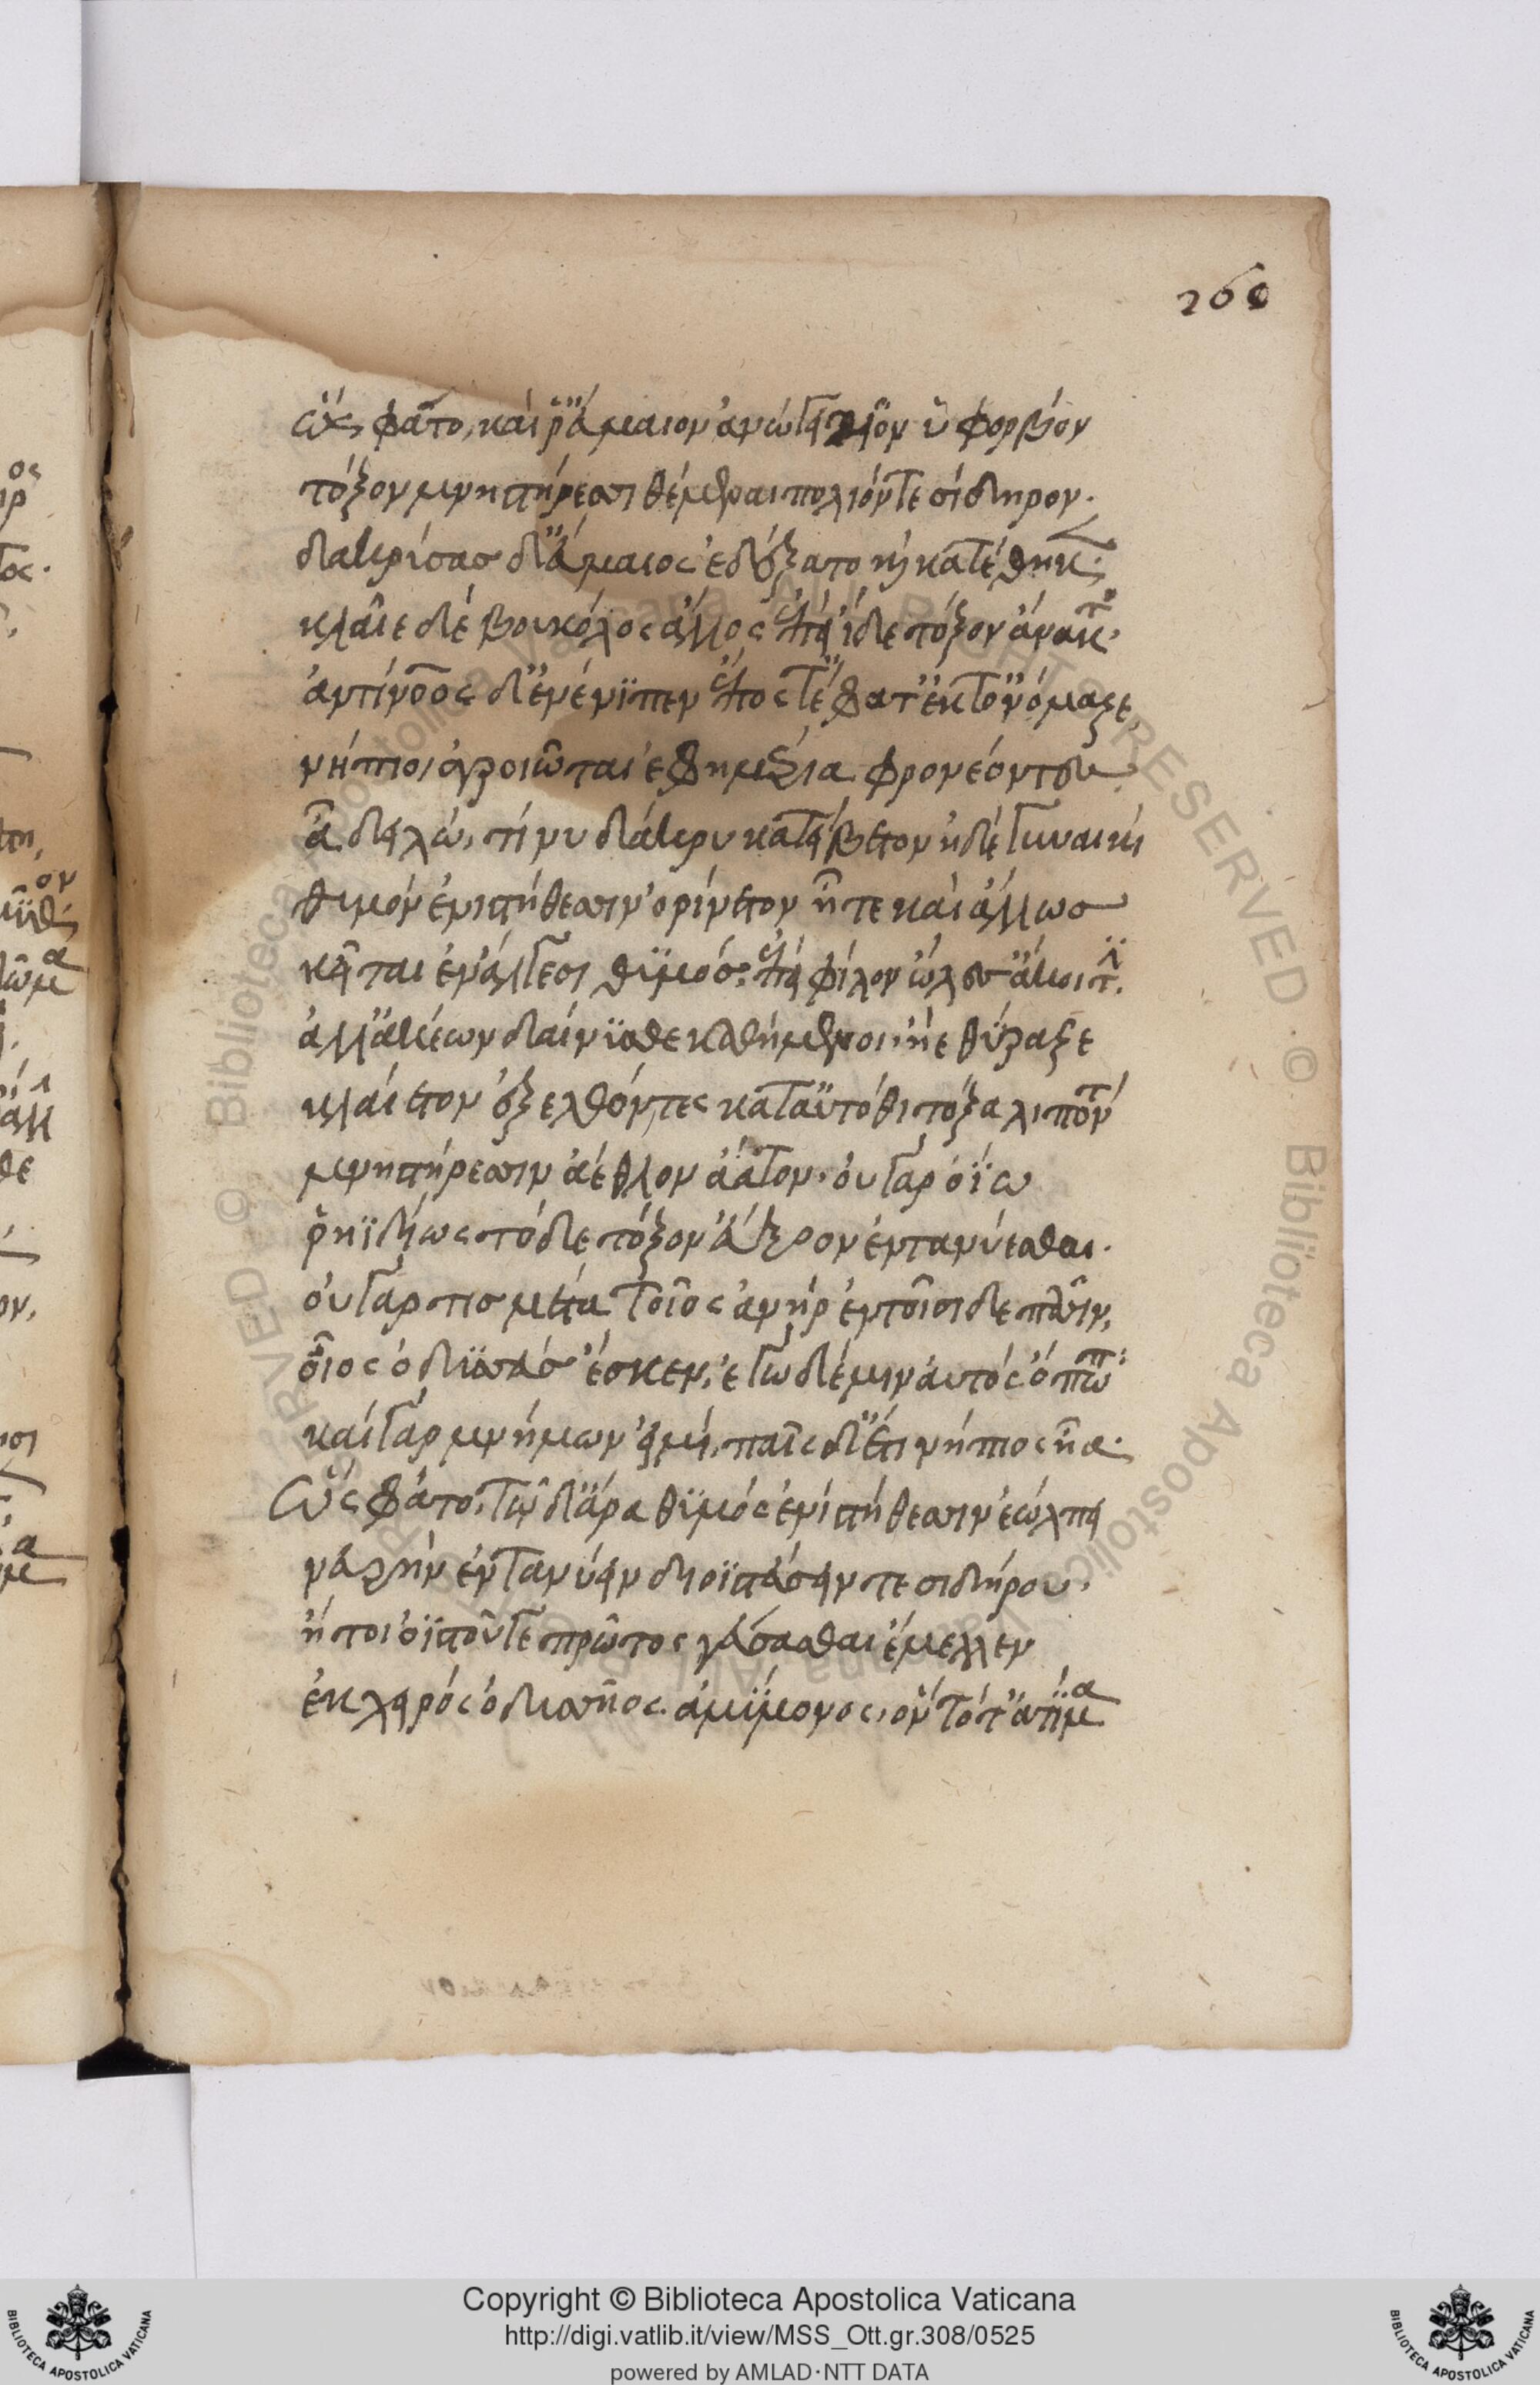 260
ὣς φάτο, καί ῥ' εὔμαιον ἀνώγει δῖον ὑφορβὸν
τόξον μνηστήρεσσι θέμεναι πολιόν τε σίδηρον.
δακρύσας δ' εὔμαιος ἐδέξατο καὶ κατέθηκε.
κλαῖε δὲ βουκόλος ἄλλος ἐπεὶ ἴδε τόξον ἄνακτος.
ἀντίνοος δ' ἐνένιπεν ἔπος τ' ἔφατ' ἔκ τ' ὀνόμαζε,
νήπιοι ἀγροιῶται ἐφημέρια φρονέοντες
ἆ δειλώ, τί νυ δάκρυ κατείβετον ἠδὲ γυναικὶ
θυμὸν ἐνὶ στήθεσσιν ὀρίνετον ἧ τε καὶ ἄλλως
κεῖται ἐν ἄλγεσι θυμός, ἐπεὶ φίλον ὤλεσ' ἀκοίτην.
ἀλλ' ἀκέων δαίνυσθε καθήμενοι ἠὲ θύραζε
κλαίετον ἐξελθόντες κατ' αὐτόθι τόξα λιπόντε
μνηστήρεσσιν ἄεθλον ἀάατον. οὐ γὰρ ὀΐω
ῥηϊδίως τόδε τόξον ἐΰξοον ἐντανύεσθαι.
οὐ γάρ τις μέτα τοῖος ἀνὴρ ἐν τοῖσιδε πᾶσιν,
οἷος ὀδυσσεὺς ἔσκεν, ἐγὼ δέ μιν αὐτὸς ὄπωπα
καὶ γὰρ μνήμων εἰμί, παῖς δ' ἔτι νήπιος ἦα.
Ὣς φάτο, τῷ δ' ἄρα θυμὸς ἐνὶ στήθεσσιν ἐώλπει
νευρὴν ἐντανύειν διοϊστεύσειν τε σιδήρου.
ἤτοι ὀϊστοῦ γε πρῶτος γεύσασθαι ἔμελλεν
ἐκ χειρὸς ὀδυσῆος ἀμύμονος, ὃν τότ' ἀτίμα
Copyright © Biblioteca Apostolica Vaticana
http://digi.vatlib.it/view/MSS_Ott.gr.308/0525
powered by AMLAD·NTT DATA